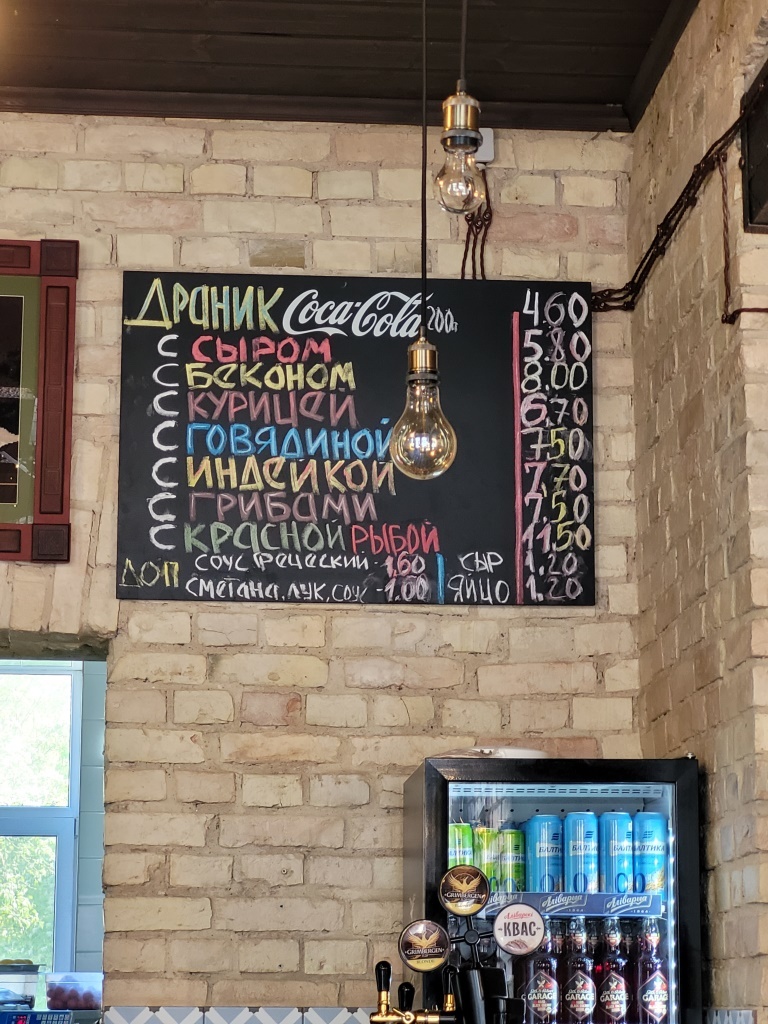 ДРАНИК Coca-Cola 200г 4.60
С СЫРОМ 5.80
С БЕКОНОМ 8.00
С КУРИЦЕЙ 6.70
С ГОВЯДИНОЙ 7.50
С ИНДЕЙКОЙ 7.70
С ГРИБАМИ 7.50
С КРАСНОЙ РЫБОЙ 11.50
ДОП СОУС ГРЕЧЕСКИЙ - 1.60 СЫР 1.20
СМЕТАНА, ЛУК, СОУС - 1.00 ЯЙЦО 1.20
БАЛТИКА БАЛТИКА
0 0 0 0
GRIMBERGEN
Аліварыя Аліварыя
Аліварыя
КВАС
GRIMBERGEN
BLONDE
GARAGE GARAGE GARAGE GARAGE